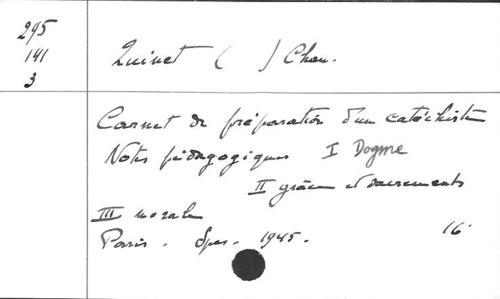 295
141
3
Quinet ( ) Chan.
Carnet de préparation d'un catéchiste
Notes pédagogiques I Dogme
II grâce et sacrements
III morale
Paris. Spes. 1945. 16°